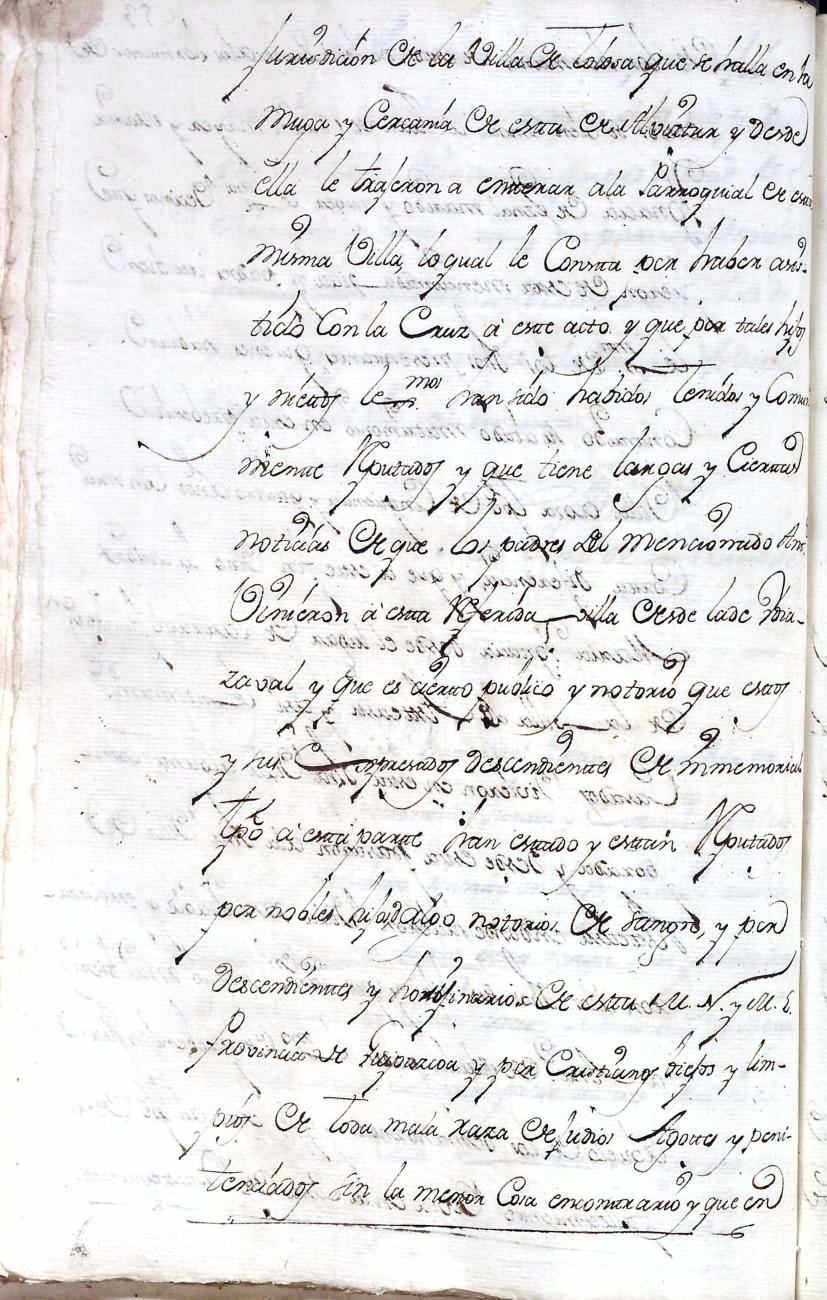 Jurisdición de la Villa de Tolosa que se halla en la
Muga y Cercanía de esta de Alquiza y desde
ella le trajeron a enterrar a la Parroquial de esta
misma Villa, lo qual le Consta por haber asis-
tido Con la Cruz á este acto y que por tales hijos
y nietos lexmos han sido habidos tenidos y Comun
mente Reputados y que tiene largas y Ciertas
noticias de que los padres del mencionado Anto
Vinieron á esta Referida villa desde la de Ydia-
zaval y que es cierto público y notorio que estos
y sus Expresados descendientes de inmemorial
tpõ á esta parte han estado y están Reputados
por nobles hijosdalgo notorios de Sangre, y por
descendientes y horiginarios de esta M. N. y M. L.
Provincia de Guipuzcoa y por Cristianos biejos y lim-
pios de toda mala raza de judios Agotes y peni-
tenciados sin la menor Cosa encontrario y que en